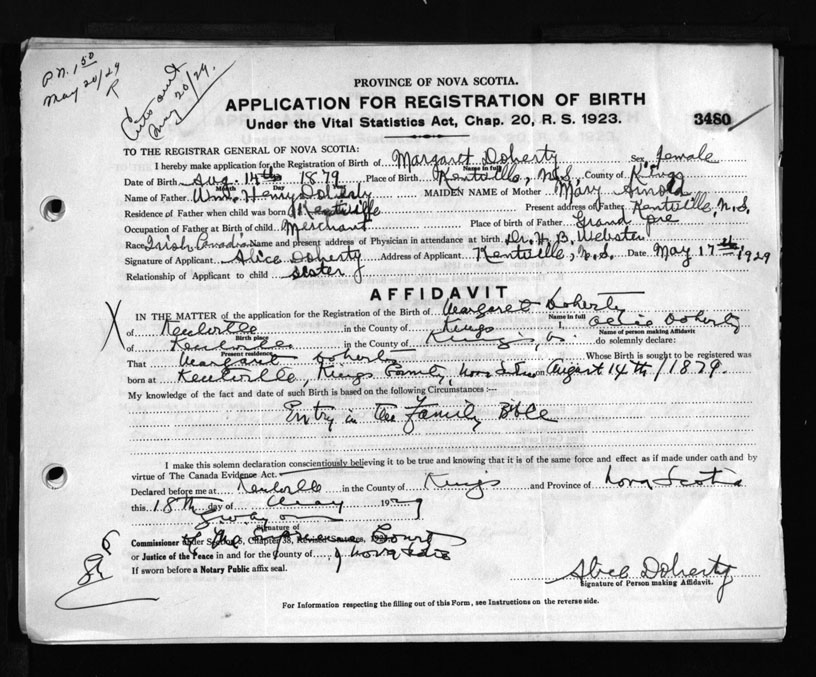 P.N. 1.50
May 20/29
May 20/29.
PROVINCE OF NOVA SCOTIA.
APPLICATION FOR REGISTRATION OF BIRTH
Under the Vital Statistics Act, Chap. 20, R. S. 1923.
3480
TO THE REGISTRAR GENERAL OF NOVA SCOTIA:
I hereby make application for the Registration of Birth of Margaret Doherty Sex, female
Name in full
Date of Birth Aug. 14th 1879 Place of Birth Kentville, N.S., County of Kings
Month Day
Name of Father Wm. Henry Doherty MAIDEN NAME of Mother Mary Arnold
Residence of Father when child was born Kentville Present address of Father Kentville, N.S.
Occupation of Father at Birth of child Merchant Place of birth of Father Grand Pre
Race Irish Canadian Name and present address of Physician in attendance at birth Dr. H. B. Webster
Signature of Applicant Alice Doherty Address of Applicant Kentville, N.S. Date May 17th 1929
Relationship of Applicant to child sister
AFFIDAVIT
IN THE MATTER of the application for the Registration of the Birth of Margaret Doherty
Name in full
of Kentville in the County of Kings I, Alice Doherty
Birth place Name of person making Affidavit
of Kentville in the County of Kings do solemnly declare:
Present residence
That Margaret Doherty Whose Birth is sought to be registered was
born at Kentville, Kings County, Nova Scotia on August 14th 1879.
My knowledge of the fact and date of such Birth is based on the following Circumstances :—
Entry in the Family Bible
I make this solemn declaration conscientiously believing it to be true and knowing that it is of the same force and effect as if made under oath and by
virtue of The Canada Evidence Act.
Declared before me at Kentville in the County of Kings and Province of Nova Scotia
this 18th day of May 1929
Signature of
Commissioner under Section 5, Chapter 38, Revised Statutes, of the Supreme Court
or Justice of the Peace in and for the County of Nova Scotia
If sworn before a Notary Public affix seal.
Alice Doherty
Signature of Person making Affidavit.
For Information respecting the filling out of this Form, see Instructions on the reverse side.